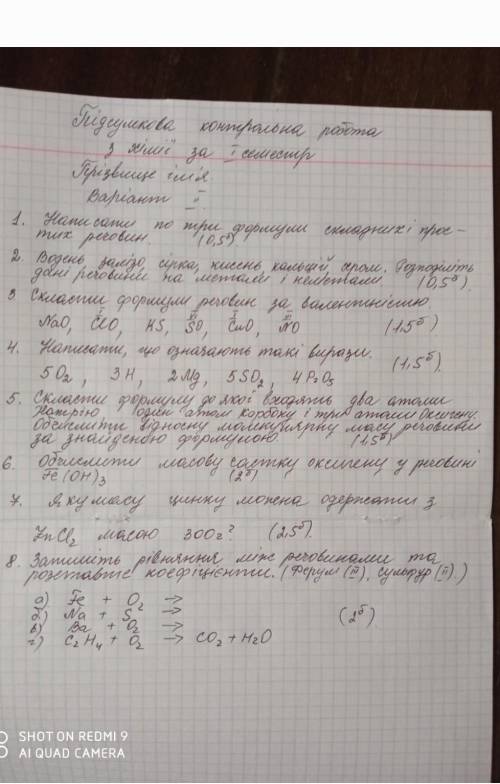 Підсумкова контрольна робота
з хімії за I семестр
Прізвище ім'я
Варіант II
1. Написати по три формули складних і прос-
тих речовин. (0,5б)
2. Водень, залізо, сірка, кисень, кальцій, хром. Розподіліть
дані речовини на метали і неметали. (0,5б).
3 Скласти формули речовин за валентністю
NaO, ClO, KS, SO, CuO, NO (1,5б)
4. Написати, що означають такі вирази. (1,5б).
5O2, 3H, 2Mg, 5SO2, 4P2O5
5. Скласти формулу до якої входять два атоми
Натрію один атом карбону і три атоми Оксигену.
Обчислити відносну молекулярну масу речовини
за знайденою формулою. (1,5б)
6. Обчислити масову частку оксигену у речовині
Fe(OH)3 (2б)
7. Яку масу цинку можна одержати з
ZnCl2 масою 300г? (2,5б).
8. Запишіть рівняння між речовинами та
розставте коефіцієнти. (Ферум (III), Сульфур (II).)
а) Fe + O2 →
б) Na + S →
в) Ba + O2 → (2б)
г) C2H4 + O2 → CO2 + H2O
SHOT ON REDMI 9
AI QUAD CAMERA